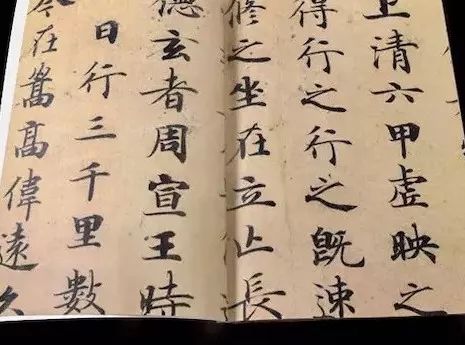 上清六甲虛映之
得行之行之既速
修之坐在立亡長
德玄者周宣王時
日行三千里數
今在嵩高偉遠久